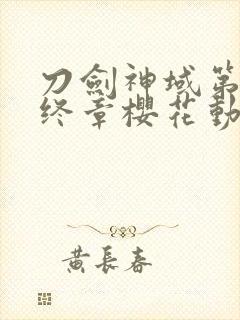 刀劍神域第
終章櫻花動
黃長春